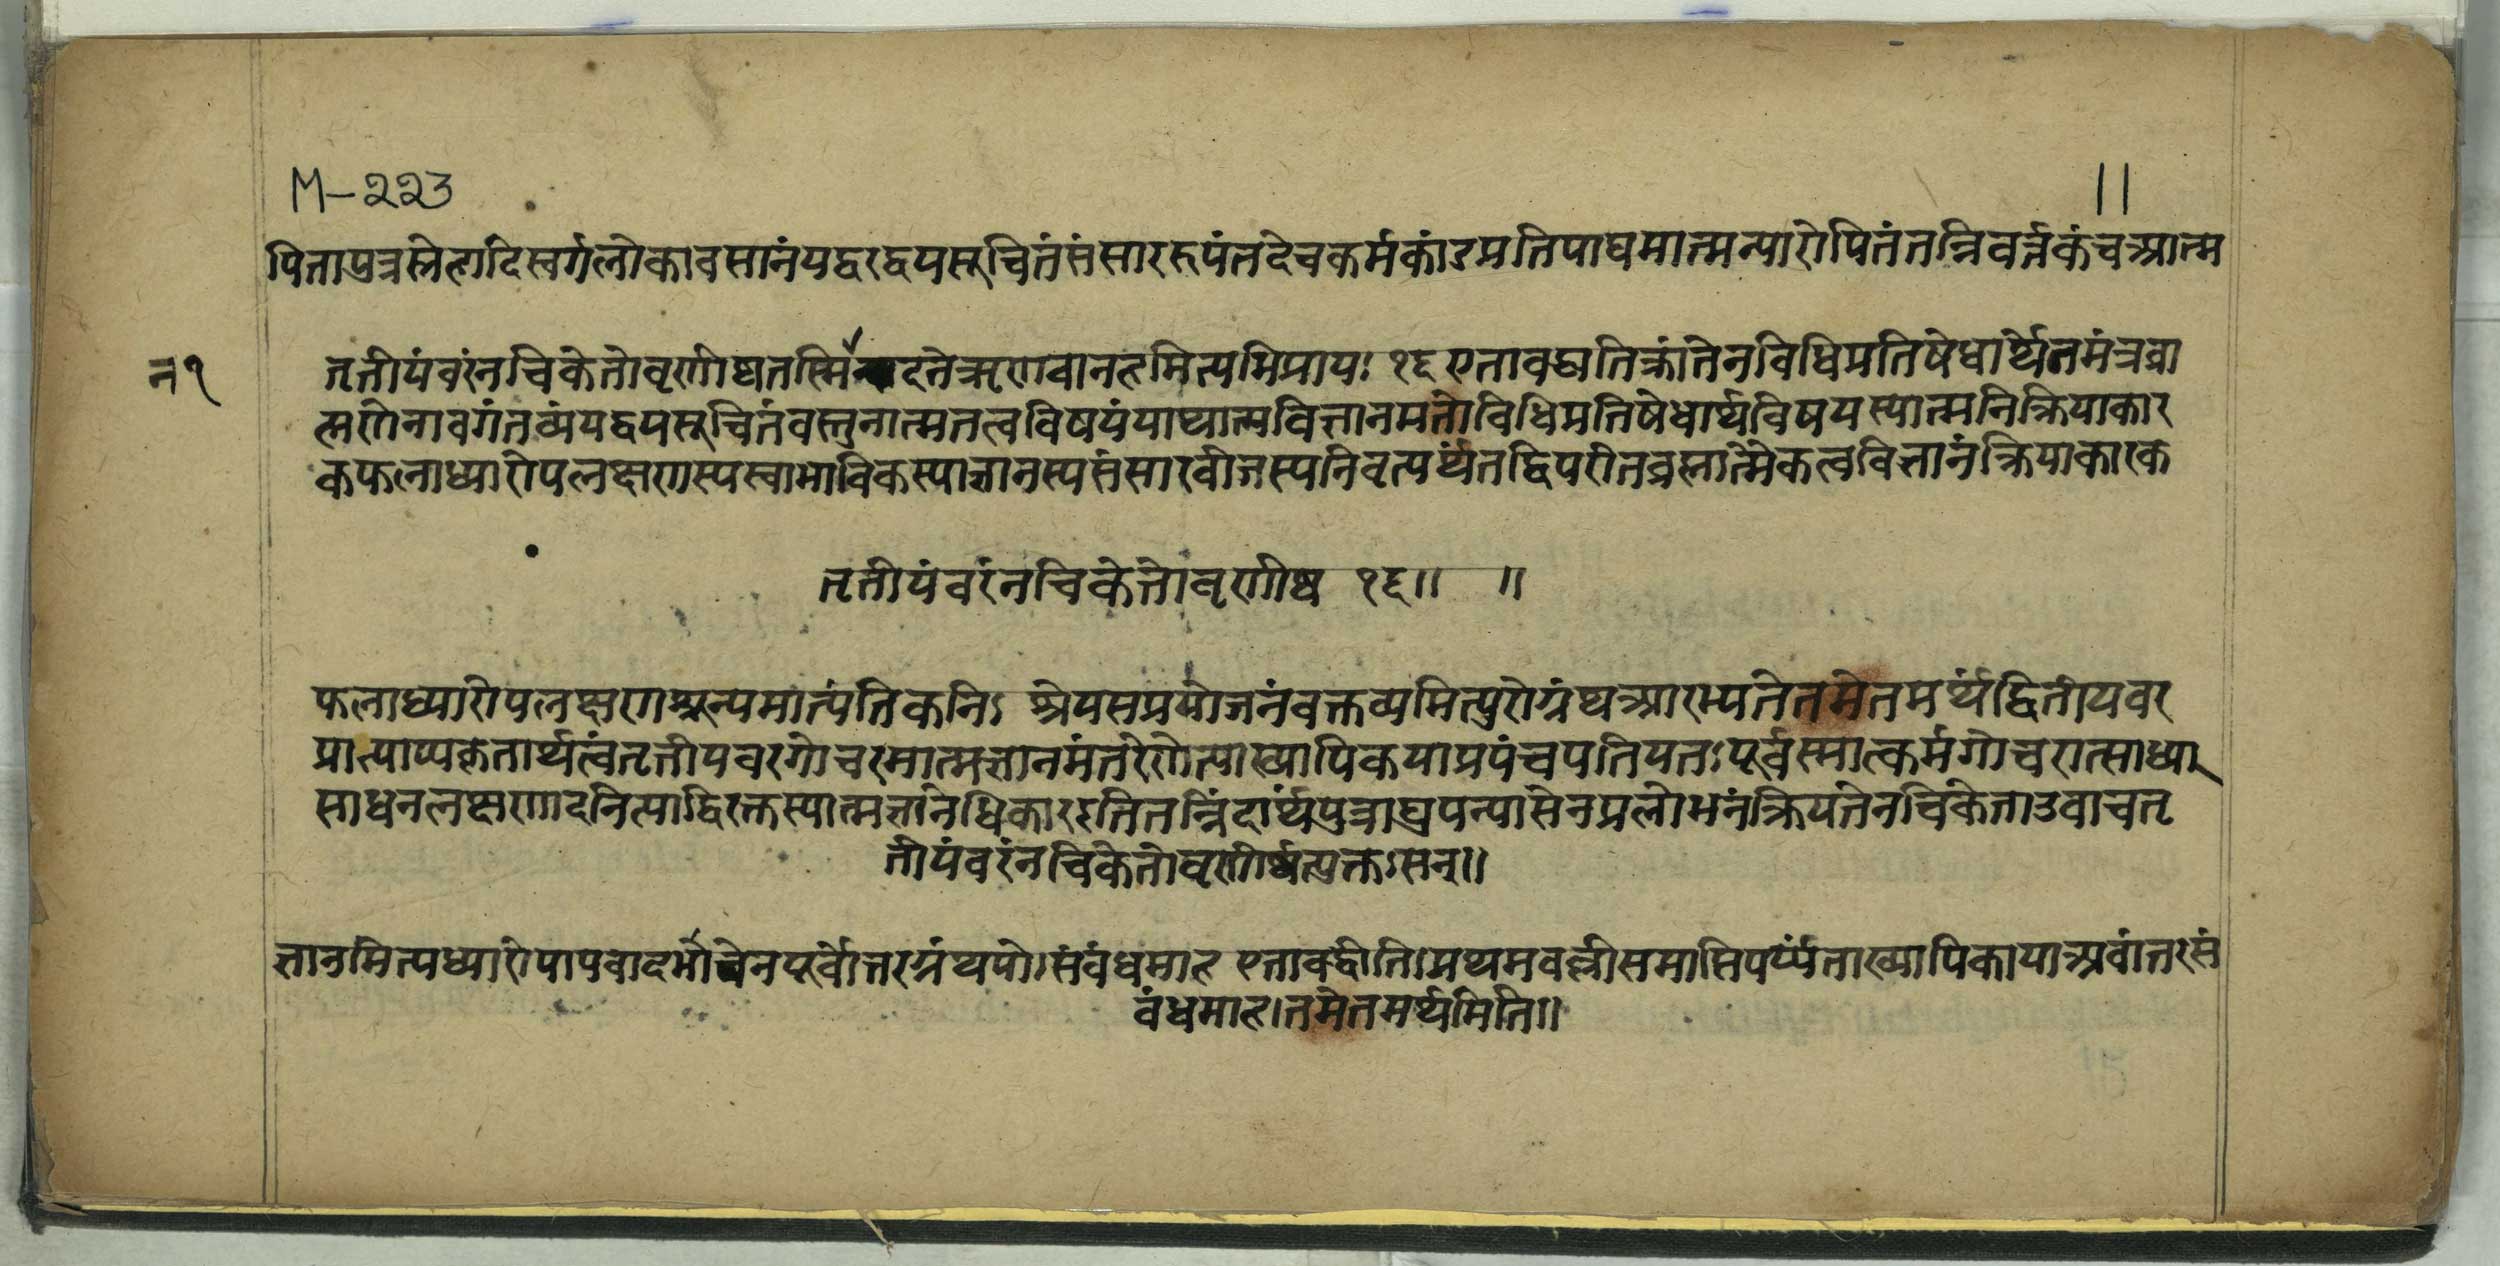 M-२२३
॥
पितापुत्रस्नेहादिस्वर्गलोकावसानंयद्वरद्वयसूचितंसंसाररूपंतदेवकर्मकांडप्रतिपाद्यमात्मन्यारोपितंतन्निवर्त्तकंचआत्म
न१
तृतीयंवरंनचिकेतोवृणीष्वतस्मिन्दत्तेऋणवानहमित्यभिप्रायः १६ एतावद्ध्यतिक्रांतेनविधिप्रतिषेधार्थेनमंत्रब्रा
ह्मणेनावगंतव्यंयद्वयसूचितंवस्तुनात्मतत्वविषयंयाथात्म्यविज्ञानमतोविधिप्रतिषेधार्थविषयस्यात्मनिक्रियाकार
कफलाध्यारोपलक्षणस्यस्वाभाविकस्याज्ञानस्यसंसारबीजस्यनिवृत्यर्थंतद्विपरीतब्रह्मात्मैकत्वविज्ञानंक्रियाकारक
तृतीयंवरंनचिकेतोवृणीष्व १६॥ ॥
फलाध्यारोपलक्षणशून्यमात्यंतिकनिः श्रेयसप्रयोजनंवक्तव्यमित्युत्तरोग्रंथआरभ्यतेतमेतमर्थंद्वितीयवर
प्राप्त्याप्यकृतार्थत्वंतृतीयवरगोचरमात्मज्ञानमंतरेणेत्याख्यायिकयाप्रपंचयतियतःपूर्वस्मात्कर्मगोचरात्साध्य
साधनलक्षणादनित्याद्विरक्तस्यात्मज्ञानेधिकारइतितन्निंदार्थंपुत्राद्युपन्यासेनप्रलोभनंक्रियतेनचिकेताउवाचतृ
तीयंवरंनचिकेतोवृणीष्वेत्युक्तःसन्॥
ज्ञानमित्यध्यारोपापवादभावेनपूर्वोत्तरग्रंथयोःसंबंधमाह एतावद्धीति।प्रथमवल्लीसमाप्तिपर्य्यंताख्यायिकायाअवांतरसं
बंधमाह।तमेतमर्थमिति॥